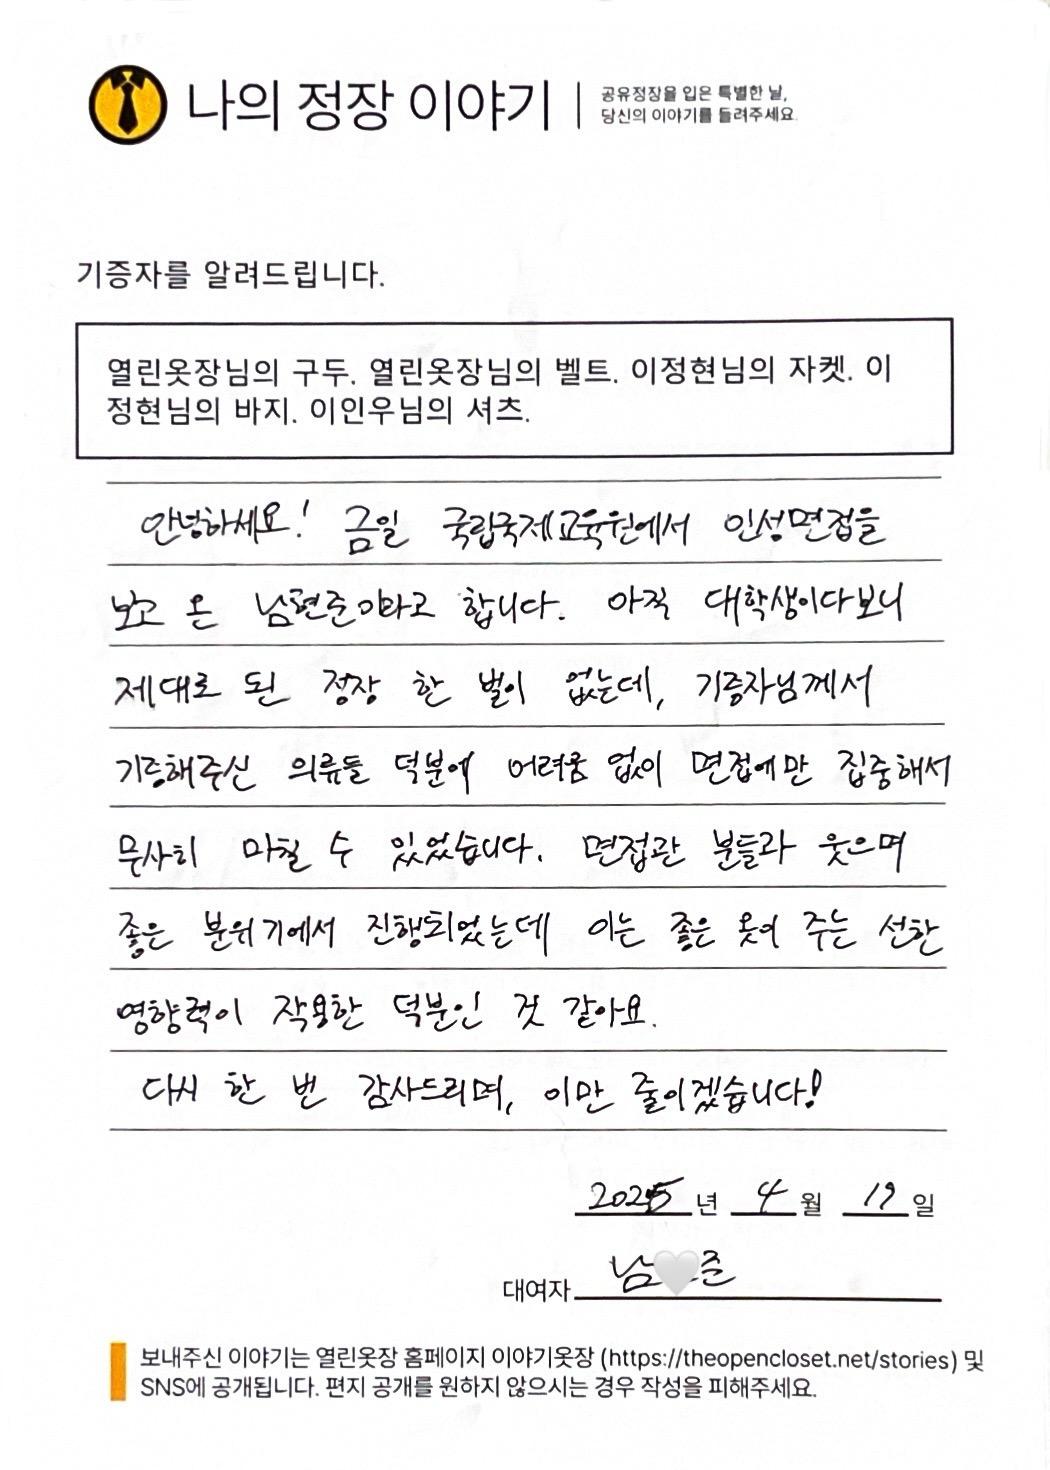 나의 정장 이야기
공유정장을 입은 특별한 날,
당신의 이야기를 들려주세요.
기증자를 알려드립니다.
열린옷장님의 구두. 열린옷장님의 벨트. 이정현님의 자켓. 이
정현님의 바지. 이인우님의 셔츠.
안녕하세요! 금일 국립국제교육원에서 인성면접을
보고 온 남현준이라고 합니다. 아직 대학생이다보니
제대로 된 정장 한 벌이 없는데, 기증자님께서
기증해주신 의류들 덕분에 어려움 없이 면접에만 집중해서
무사히 마칠 수 있었습니다. 면접관 분들과 웃으며
좋은 분위기에서 진행되었는데 이는 좋은 옷이 주는 선한
영향력이 작용한 덕분인 것 같아요.
다시 한 번 감사드리며, 이만 줄이겠습니다!
2025년 4월 19일
대여자 남 준
보내주신 이야기는 열린옷장 홈페이지 이야기옷장 (https://theopencloset.net/stories) 및
SNS에 공개됩니다. 편지 공개를 원하지 않으시는 경우 작성을 피해주세요.